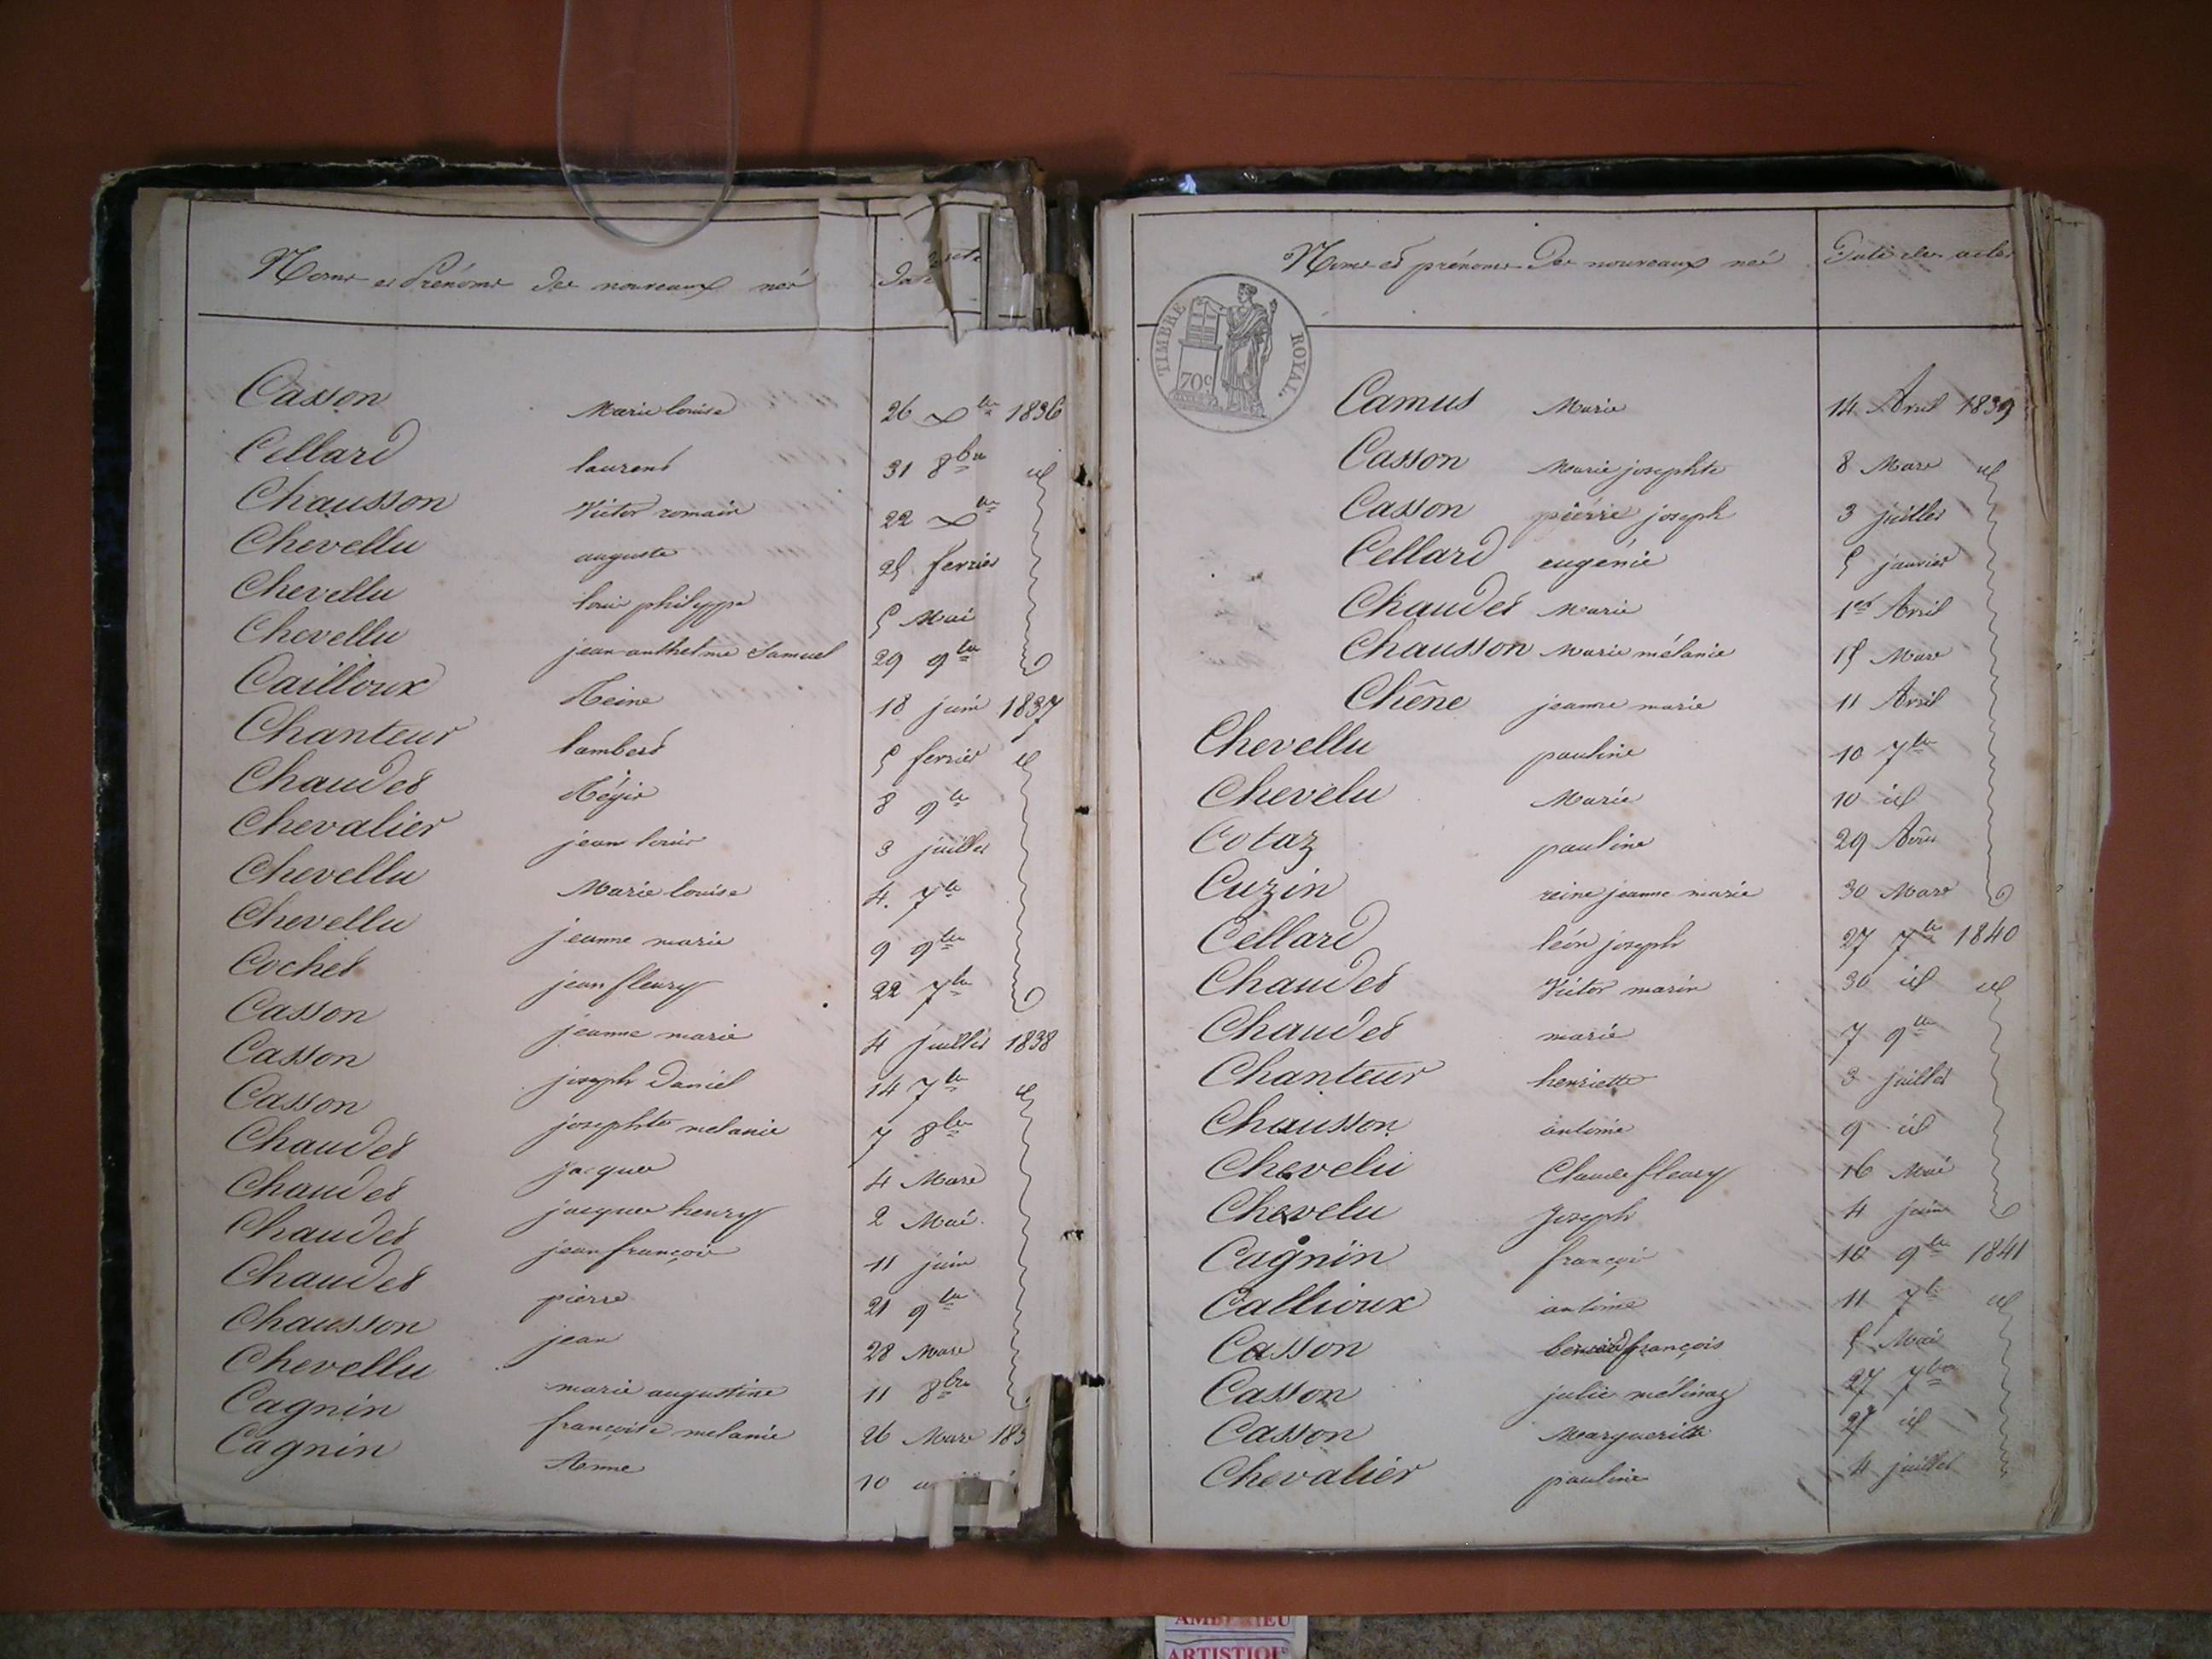 Noms et Prénoms des nouveaux nés Date
Casson Marie louise 26 Xbre 1836
Cellard laurent 31 8bre id
Chausson Victor romain 22 Xbre
Chevellu auguste 25 fevrier
Chevellu loui philippe 5 Mai
Chevellu jean anthelme Samuel 29 9bre
Cailloux Reine 18 juin 1837
Chanteur lambert 5 fevrier id
Chaudet Régis 8 9bre
Chevalier jean louis 3 juillet
Chevellu Marie louise 4. 7bre
Chevellu jeanne marie 9 9bre
Cochet jean fleury 22 7bre
Casson jeanne marie 4 juillet 1838
Casson joseph Daniel 14 7bre id
Casson josephte melanie 7 8bre
Chaudet jacques 4 Mars
Chaudet jacques henry 2 Mai
Chaudet jean françois 11 juin
Chaudet pierre 21 9bre
Chausson jean 28 Mars
Chevellu marie augustine 11 8bre
Cagnin françoise melanie 26 Mars 183
Cagnin Anne 10
Noms et prénoms des nouveaux nés Date des actes
TIMBRE ROYAL
70c
Camus Marie 14 Avril 1839
Casson Marie josephte 8 Mars id
Casson pierre joseph 3 juillet
Cellard eugénie 5 janvier
Chaudet Marie 1er Avril
Chausson Marie mélanie 15 Mars
Chêne jeanne marie 11 Avril
Chevellu pauline 10 7bre
Chevelu Marie 10 id
Cotaz pauline 29 Août
Cuzin reine jeanne marie 30 Mars
Cellard léon joseph 27 7bre 1840
Chaudet Victor marin 30 id id
Chaudet marie 7 9bre
Chanteur henriette 3 juillet
Chausson antoine 9 id
Chevelu Claude fleury 16 Mai
Chevelu Joseph 4 juin
Cagnin françois 10 9bre 1841
Callioux antoine 11 7bre id
Casson benoit françois 5 Mai
Casson julie mélinaz 27 7bre
Casson Marguerite 27 id
Chevalier pauline 4 juillet
ARTISTIQU